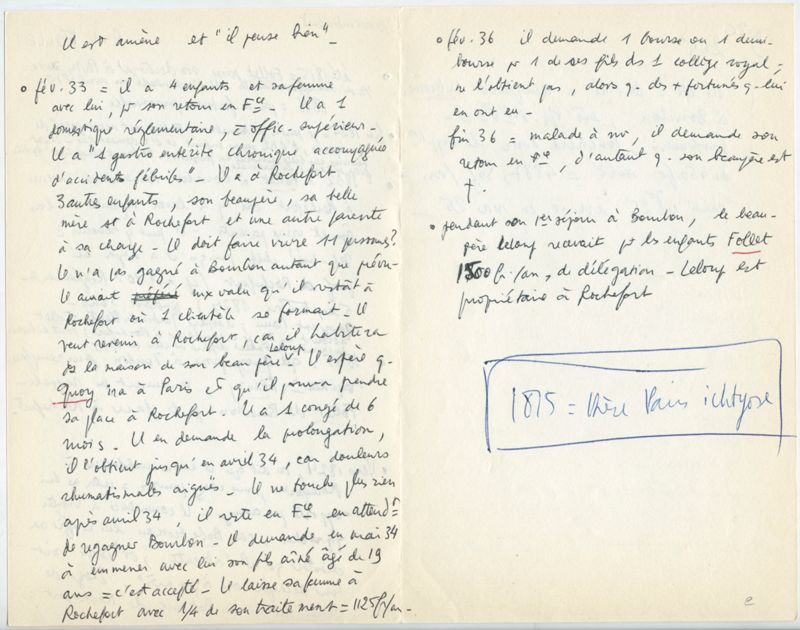 Il est amène et "il pense bien" -
o fév. 33 = il a 4 enfants et sa femme
avec lui, pr son retour en Fce. Il a 1
domestique réglementaire, = offic. supérieur.,
Il a "1 gastro entérite chronique accompagnée
d'accidents fébriles". Il a à Rochefort
3 autres enfants son beau père, sa belle
mère st à Rochefort et une autre parente
à sa charge. Il doit faire vivre 11 personnes?
Il n'a pas gagné à Bourbon autant que prévu.
Il aurait préféré mx valu qu'il restât à
Rochefort où 1 clientèle se formait. Il
veut revenir à Rochefort, car il habitera
ds la maison de son beau père Leloup. Il espère q.
Quoy ira à Paris et qu'il pourra prendre
sa place à Rochefort. Il a 1 congé de 6
mois. Il en demande la prolongation,
il l'obtient jusqu'en avril 34, car douleurs
rhumatismales aiguës. Il ne touche plus rien
après avril 34, il reste en Fce en attendt
de regagner Bourbon. Il demande en mai 34
à emmener avec lui son fils aîné âgé de 19
ans = c'est accepté. Il laisse sa femme à
Rochefort avec 1/4 de son traitement = 1125 fr/an.
o fév. 36 il demande 1 bourse ou 1 demi-
bourse pr 1 de ses fils ds 1 collège royal =
ne l'obtient pas, alors q. des + fortunés q. lui
en ont eu.
fin 36 = malade à nv, il demande son
retour en Fce, d'autant q. son beau père est
†.
o pendant son 1er séjour à Bourbon, le beau-
père Leloup recevait pr les enfants Follet
1500 fr/an, de délégation - Leloup est
propriétaire à Rochefort
1815 = thèse Paris ichtyose
e